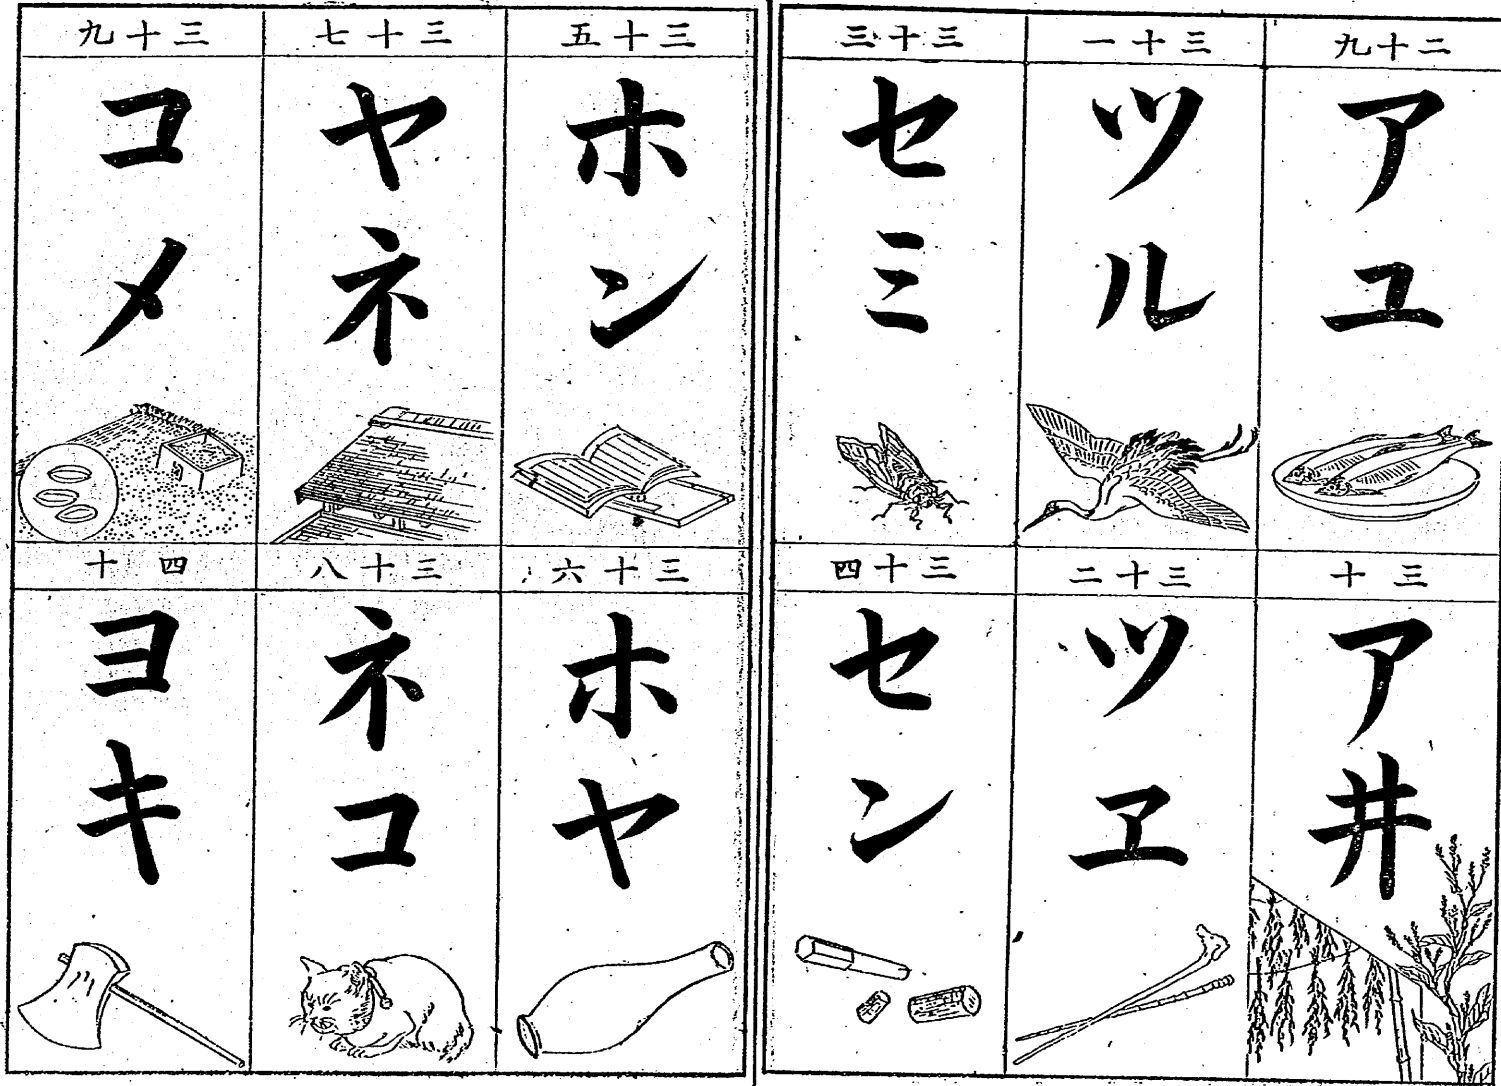 二十九
アユ
三十
アヰ
三十一
ツル
三十二
ツヱ
三十三
セミ
三十四
セン
三十五
ホン
三十六
ホヤ
三十七
ヤネ
三十八
ネコ
三十九
コメ
四十
ヨキ